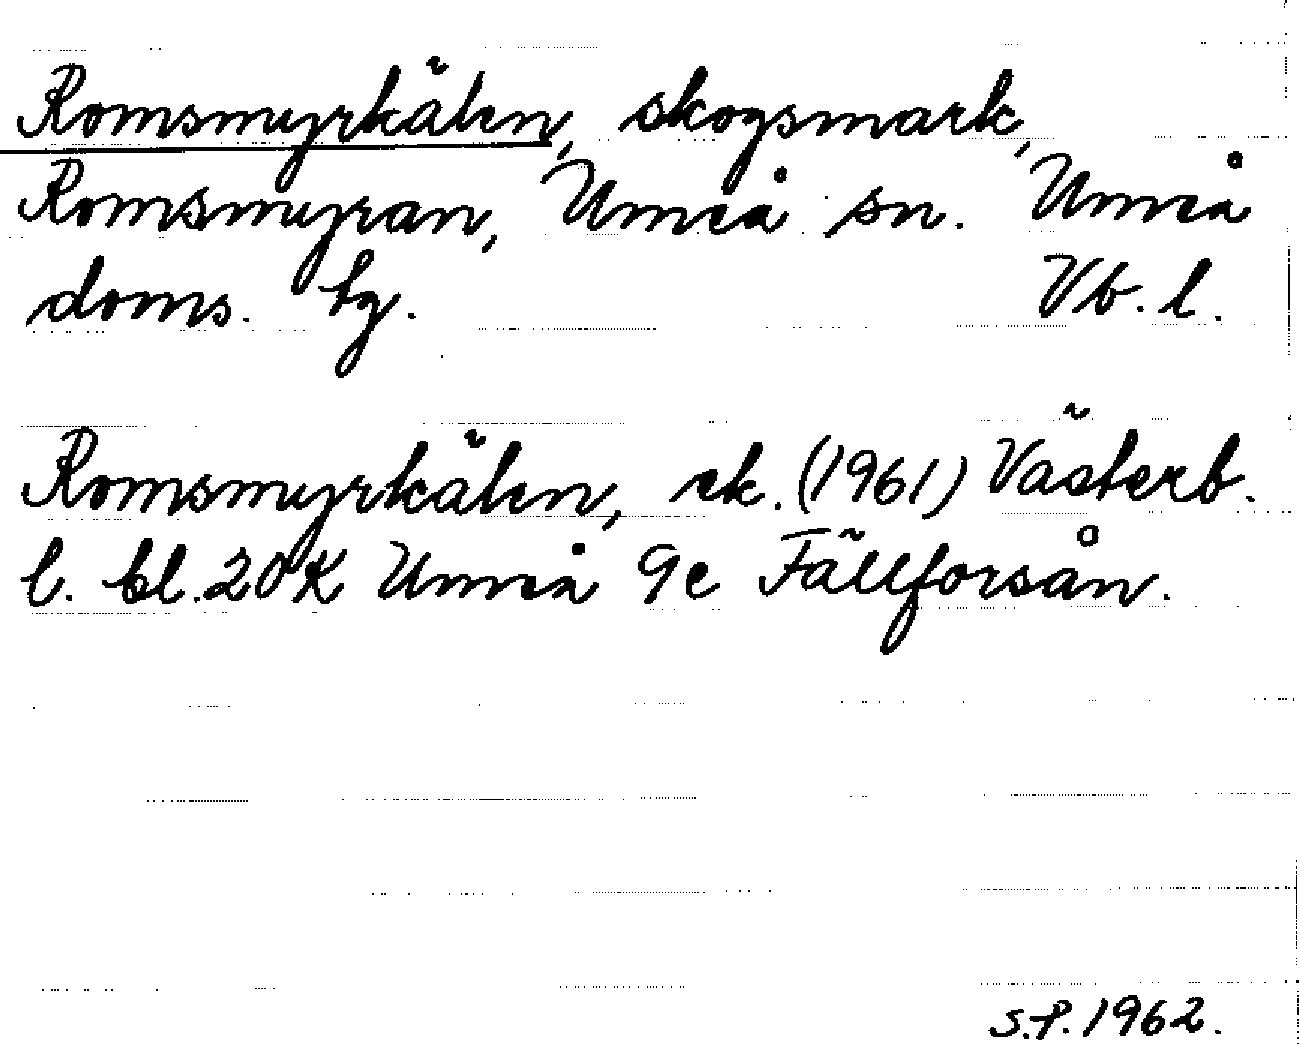 Romsmyrkälen, skogsmark,
Romsmyran, Umeå sn. Umeå
doms. tg. Vb. l.
Romsmyrkälen, ek. (1961) Västerb.
l. bl. 20 K Umeå 9e Fällforsån.
S.P. 1962.